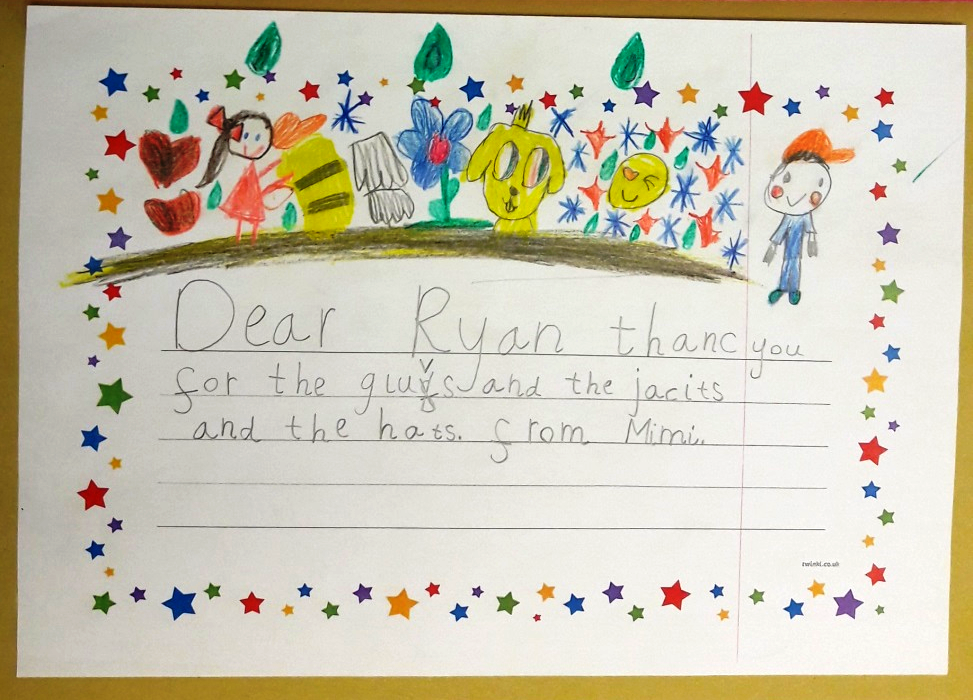 Dear Ryan thanc you
for the gluvs and the jacits
and the hats. from Mimi.
twinkl.co.uk